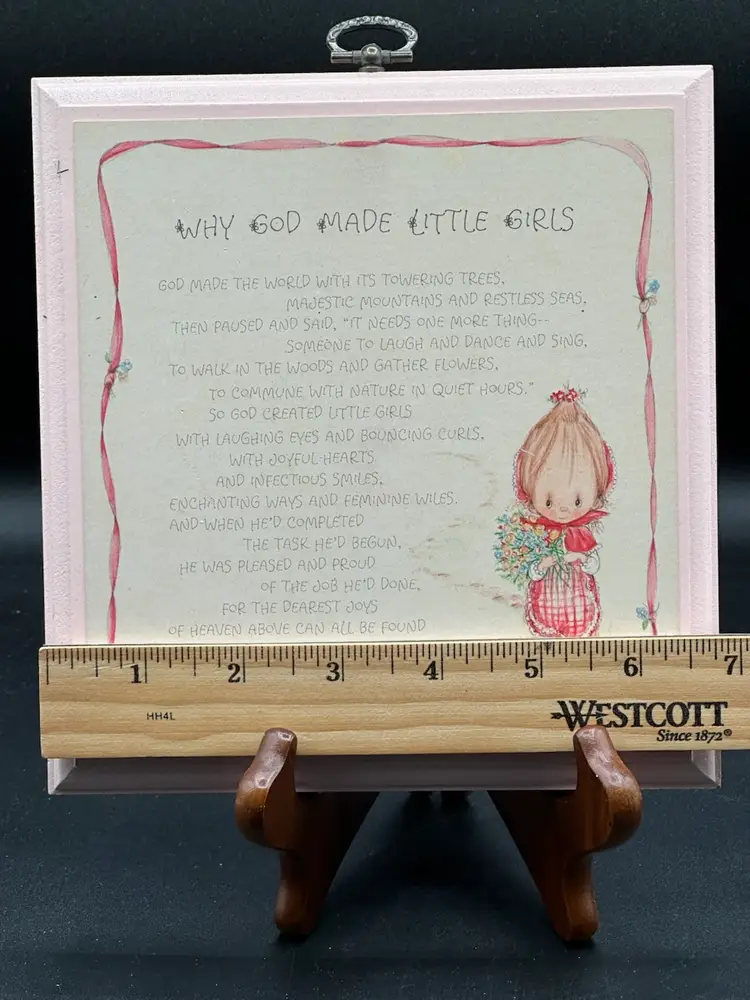 WHY GOD MADE LITTLE GIRLS
GOD MADE THE WORLD WITH ITS TOWERING TREES,
MAJESTIC MOUNTAINS AND RESTLESS SEAS,
THEN PAUSED AND SAID, "IT NEEDS ONE MORE THING--
SOMEONE TO LAUGH AND DANCE AND SING,
TO WALK IN THE WOODS AND GATHER FLOWERS,
TO COMMUNE WITH NATURE IN QUIET HOURS."
SO GOD CREATED LITTLE GIRLS
WITH LAUGHING EYES AND BOUNCING CURLS,
WITH JOYFUL HEARTS
AND INFECTIOUS SMILES,
ENCHANTING WAYS AND FEMININE WILES.
AND WHEN HE'D COMPLETED
THE TASK HE'D BEGUN,
HE WAS PLEASED AND PROUD
OF THE JOB HE'D DONE,
FOR THE DEAREST JOYS
OF HEAVEN ABOVE CAN ALL BE FOUND
1 2 3 4 5 6 7
HH4L
WESTCOTT
Since 1872®